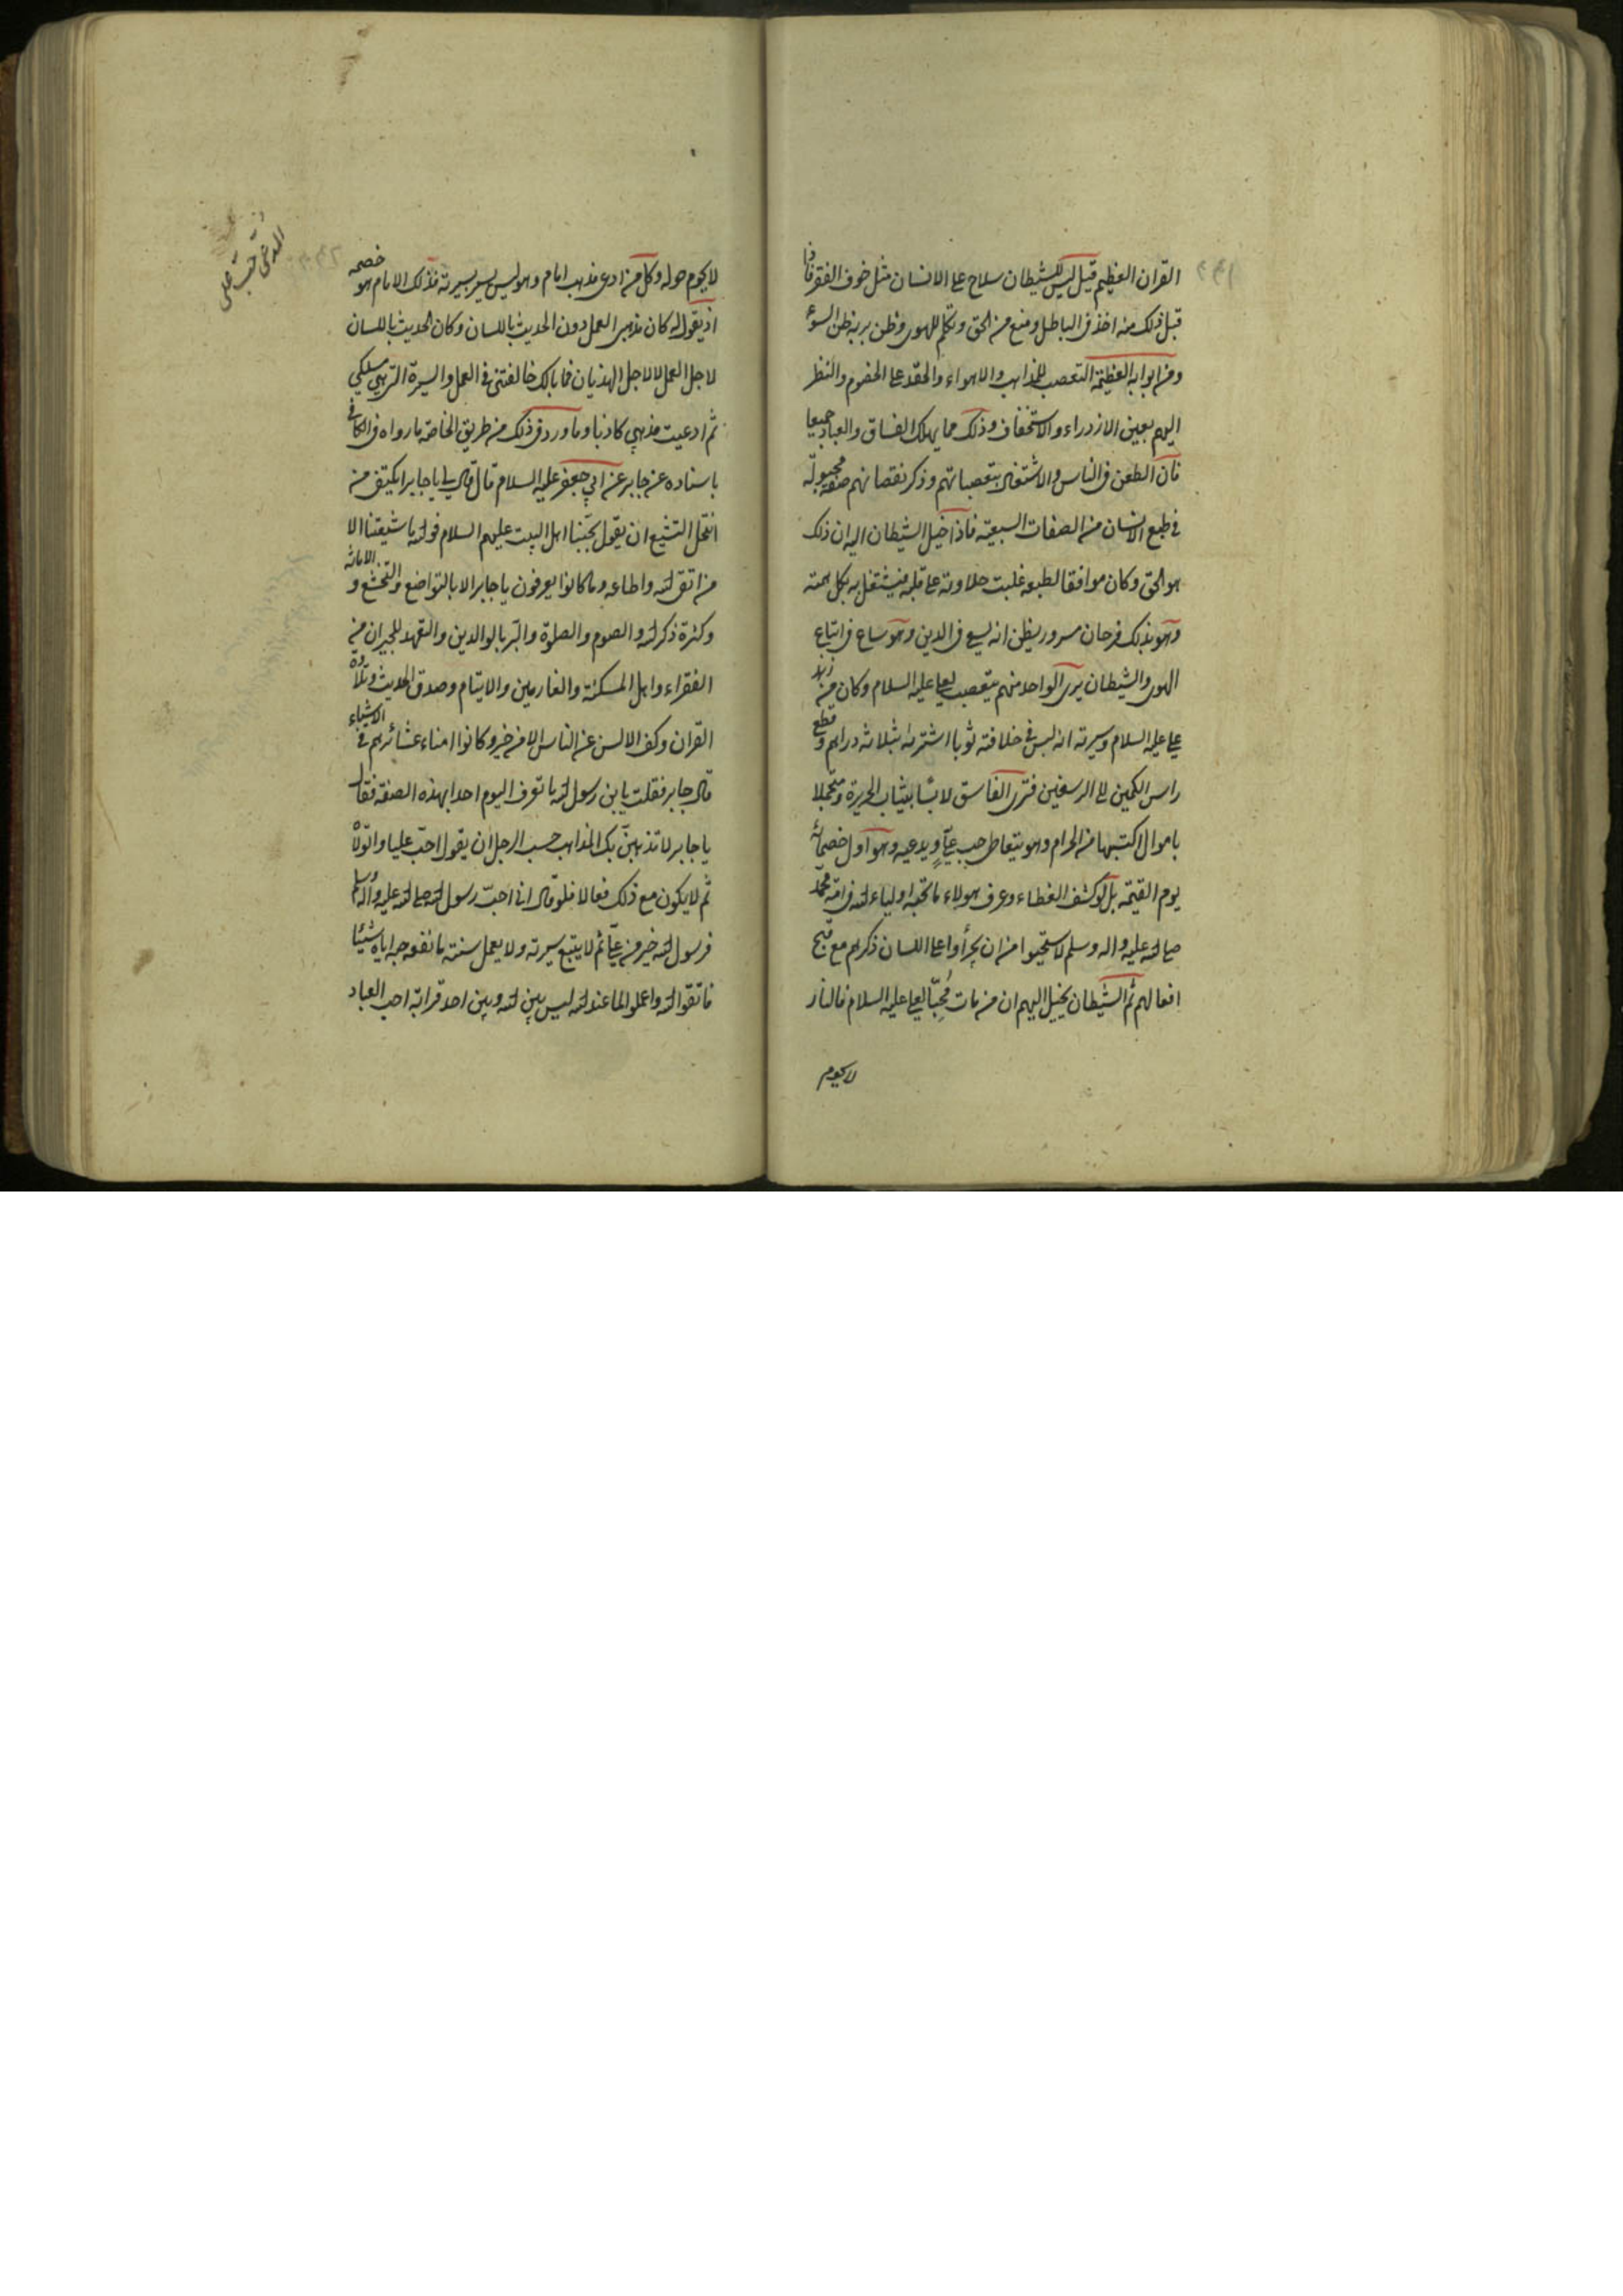 القران العظيم قيل ليس للشيطان سلاح على الانسان مثل خوف الفقر فاذا
قبل ذلك منه اخذ في الباطل ومنع من الحق وتكلم للهوى وظن بربه ظن السوء
ومن ابوابه العظيمة التعصب للمذاهب والاهواء والحقد على الخصوم والنظر
اليهم بعين الازدراء والاستخفاف وذلك مما يهلك الفساق والعباد جميعا
فان الطعن في الناس والاشتغال بتعصباتهم وذكر نقصانهم صفة مجبولة
في طبع الانسان من الصفات السبعية فاذا خيل الشيطان اليه ان ذلك
هو الحق وكان موافقا لطبعه غلبت حلاوته على قلبه فيشتغل به بكل همته
وهو بذلك فرحان مسرور يظن انه يسعى في الدين وهو ساع في اتباع
الهوى والشيطان يرى الواحد منهم يتعصب لعلي عليه السلام وكان من زهد
علي عليه السلام وسيرته انه لبس في خلافته ثوبا اشتراه بثلاثة دراهم وقطع
راس الكمين الى الرسغين فترى الفاسق لابسا بثياب الحريرة ومتجملا
باموال اكتسبها من الحرام وهو يتعاطى حب علي ويدعيه وهو اول خصمائه
يوم القيمة بل لو كشف الغطاء وعرف هولاء ما تحبه اولياء الله في امة محمد
صلى الله عليه واله وسلم لاستحيوا من ان يجرأوا على اللسان ذكرهم مع قبح
افعالهم ثم الشيطان يخيل اليهم ان من مات محبا لعلي عليه السلام فالنار
لا يحوم
لا يحوم حوله وكل من ادعى مذهب امام وهو ليس يسير بسيرته فذلك الامام هو خصمه
اذ يقول له كان مذهبي العمل دون الحديث باللسان وكان الحديث باللسان
لاجل العمل لا لاجل الهذيان فما بالك خالفتني في العمل والسيرة التي هي مسلكي
ثم ادعيت مذهبي كاذبا وما ورد في ذلك من طريق الخاصة ما رواه في الكافي
باسناده عن جابر عن ابي جعفر عليه السلام قال قال لي يا جابر ايكتفي من
انتحل التشيع ان يقول بحبنا اهل البيت عليهم السلام فوالله ما شيعتنا الا
من اتقى الله واطاعه وما كانوا يعرفون يا جابر الا بالتواضع والتخشع و الامانة
وكثرة ذكر الله والصوم والصلوة والبر بالوالدين والتعهد للجيران من
الفقراء واهل المسكنة والغارمين والايتام وصدق الحديث وتلاوة
القران وكف الالسن عن الناس الا من خير وكانوا امناء عشائرهم في الاشياء
قال جابر فقلت يا بن رسول الله ما تعرف اليوم احدا بهذه الصفة فقال
يا جابر لا تذهبن بك المذاهب حسب الرجل ان يقول احب عليا واتولاه
ثم لا يكون مع ذلك فعالا فلو قال اني احب رسول الله صلى الله عليه واله وسلم
فرسول الله خير من علي ثم لا يتبع سيرته ولا يعمل سنته ما نفعه حبه اياه شيئا
فاتقوا الله واعملوا لما عند الله ليس بين الله وبين احد قرابة احب العباد